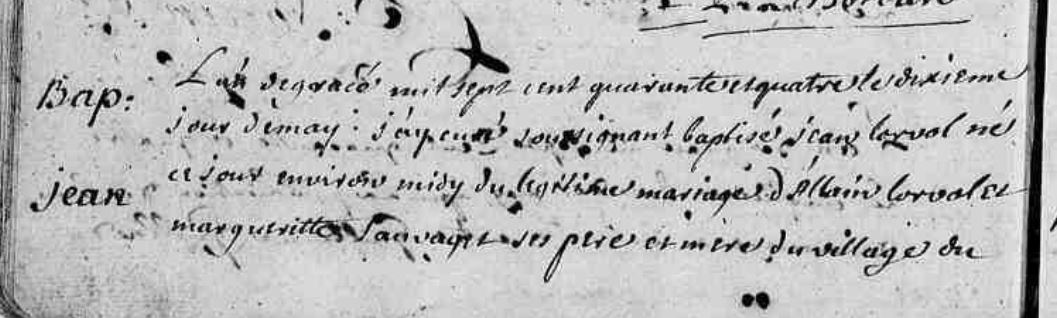 Bap:
jean
L'an de grace mil sept cent quarante et quatre le dixieme
jour de may j'ay curé soussignant baptisé jean lorvol né
ce jour environ midy du legitime mariage d'Allain lorvol et
margueritte Sauvaget ses pere et mere du village du